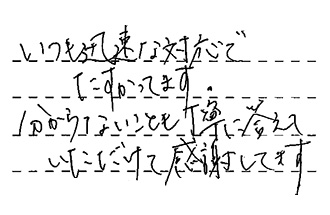 いつも迅速な対応で
たすかってます。
分からないことも丁寧に答えて
いただけて感謝してます